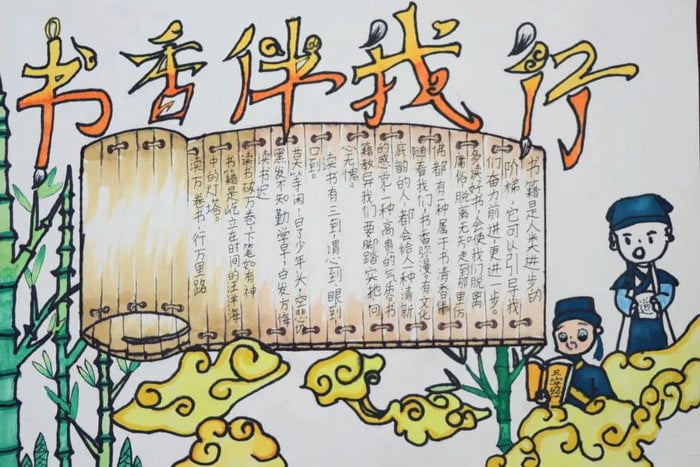 书香伴我行
书籍是人类进步的
阶梯,它可以引导我
们奋力前进,更进一步。
多读好书,会使我们脱离
庸俗,脱离无知。走到那里仿
佛都有一种属于书清香串
随着我们,书香弥漫有文化
底韵的人,都会给人一种清新
的感觉,一种高爽的气质。书
籍教导我们要脚踏实地,问
心无愧。
读书有三到,谓心到,眼到,
口到。
莫等闲,白了少年头,空悲切
黑发不知勤学早,白发方悔
读书迟
读书破万卷,下笔如有神
书籍是屹立在时间的汪洋海
中的灯塔。
读万卷书,行万里路
三字经